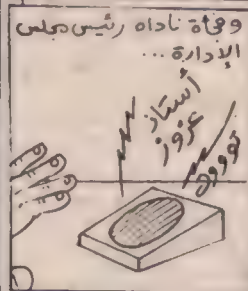 وفجأة ناداه رئيس مجلس
الإدارة ...
أستاذ
عزوز
توووت